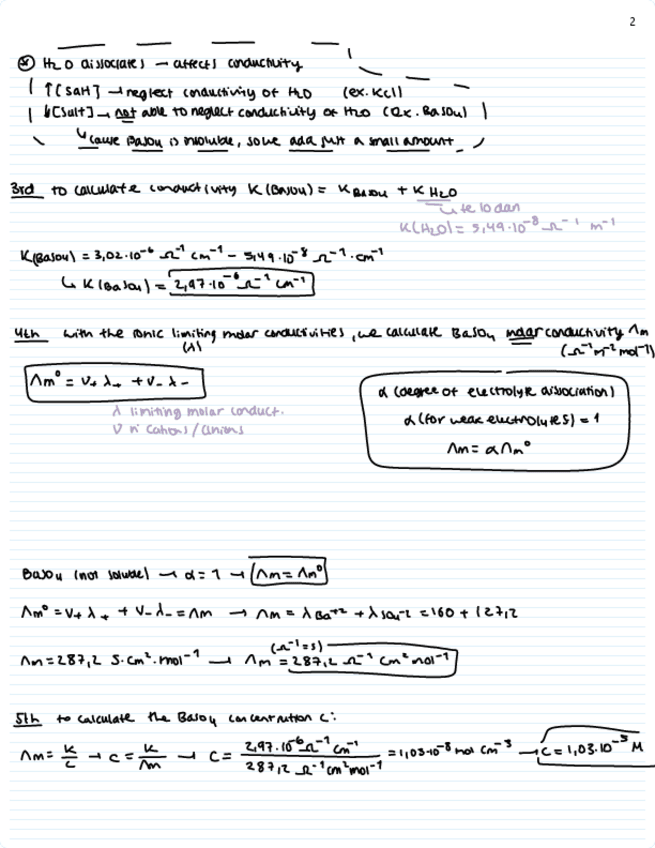 2
* H₂O dissociates → affects conductivity
↑[Salt] → neglect conductivity of H₂O (ex. KCl)
↓[Salt] → not able to neglect conductivity of H₂O (ex. BaSO₄)
↳ cause BaSO₄ is insoluble, so we add just a small amount
3rd to calculate conductivity K(BaSO₄) = K BaSO₄ + K H₂O
te lo dan
K(H₂O) = 5,49·10⁻⁸ Ω⁻¹ m⁻¹
K(BaSO₄) = 3,02·10⁻⁶ Ω⁻¹ cm⁻¹ − 5,49·10⁻⁸ Ω⁻¹·cm⁻¹
↳ K(BaSO₄) = 2,97·10⁻⁶ Ω⁻¹ cm⁻¹
4th with the ionic limiting molar conductivities, we calculate BaSO₄ molar conductivity Λm
(λ) (Ω⁻¹ m⁻² mol⁻¹)
Λm° = ν₊ λ₊ + ν₋ λ₋
λ limiting molar conduct.
ν n° cations/anions
α (degree of electrolyte dissociation)
α (for weak electrolytes) = 1
Λm = α Λm°
BaSO₄ (not soluble) → α = 1 → Λm = Λm°
Λm° = ν₊ λ₊ + ν₋ λ₋ = Λm → Λm = λ Ba⁺² + λ SO₄⁻² = 160 + 127,2
(Ω⁻¹ = S)
Λm = 287,2 S·cm²·mol⁻¹ → Λm = 287,2 Ω⁻¹ cm² mol⁻¹
5th to calculate the BaSO₄ concentration C:
Λm = K/C → C = K/Λm → C = 2,97·10⁻⁶ Ω⁻¹ cm⁻¹ / 287,2 Ω⁻¹ cm² mol⁻¹ = 1,03·10⁻⁸ mol cm⁻³ → C = 1,03·10⁻⁵ M